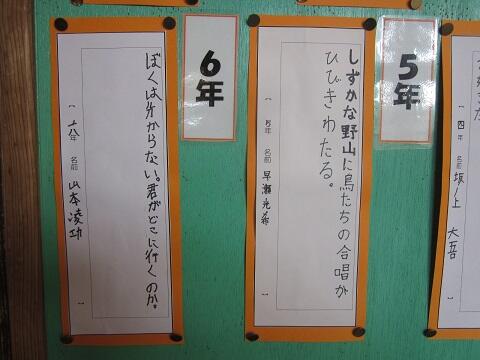 5年
しずかな野山に鳥たちの合唱が
ひびきわたる。
五年 名前 早瀬
6年
ぼくは分からない。君がどこに行くのか。
六年 名前 山本凌功
四年 名前 坂ノ上 大吾